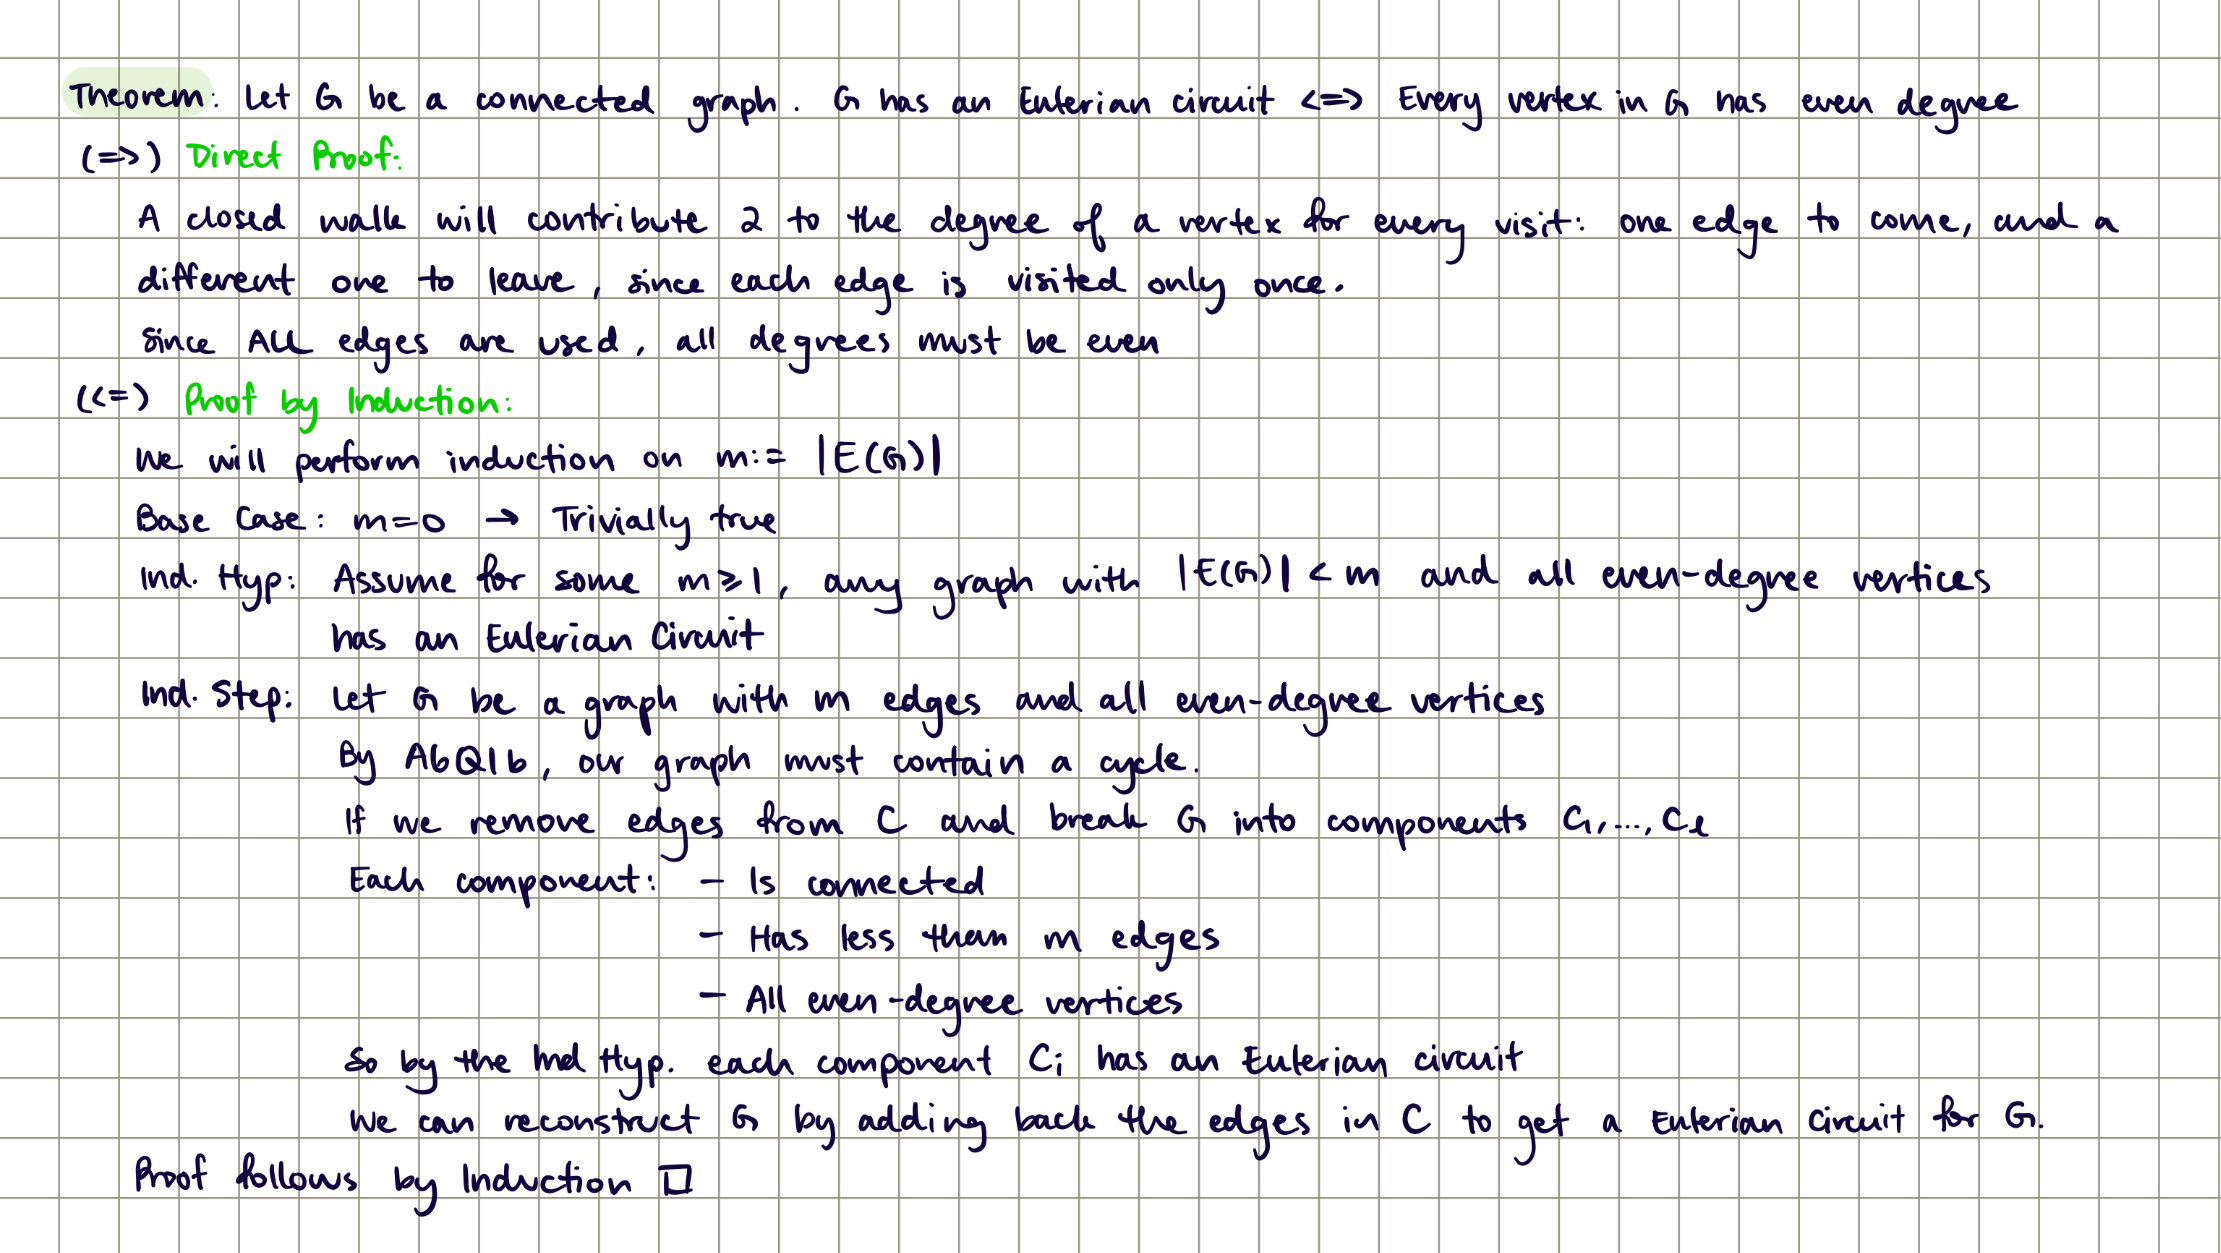 Theorem: Let G be a connected graph. G has an Eulerian circuit <=> Every vertex in G has even degree
(=>) Direct Proof:
A closed walk will contribute 2 to the degree of a vertex for every visit: one edge to come, and a
different one to leave, since each edge is visited only once.
Since ALL edges are used, all degrees must be even
(<=) Proof by Induction:
We will perform induction on m:= |E(G)|
Base Case: m=0 → Trivially true
Ind. Hyp: Assume for some m≥1, any graph with |E(G)| < m and all even-degree vertices
has an Eulerian Circuit
Ind. Step: Let G be a graph with m edges and all even-degree vertices
By A6Q1b, our graph must contain a cycle.
If we remove edges from C and break G into components C₁,...,Cℓ
Each component: - Is connected
- Has less than m edges
- All even-degree vertices
So by the Ind Hyp. each component Ci has an Eulerian circuit
We can reconstruct G by adding back the edges in C to get a Eulerian Circuit for G.
Proof follows by Induction □